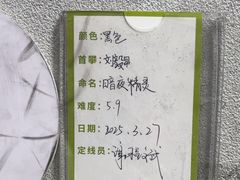 颜色：黑色
首攀：
命名：暗夜精灵
难度：5.9
日期：2025.3.27
定线员：